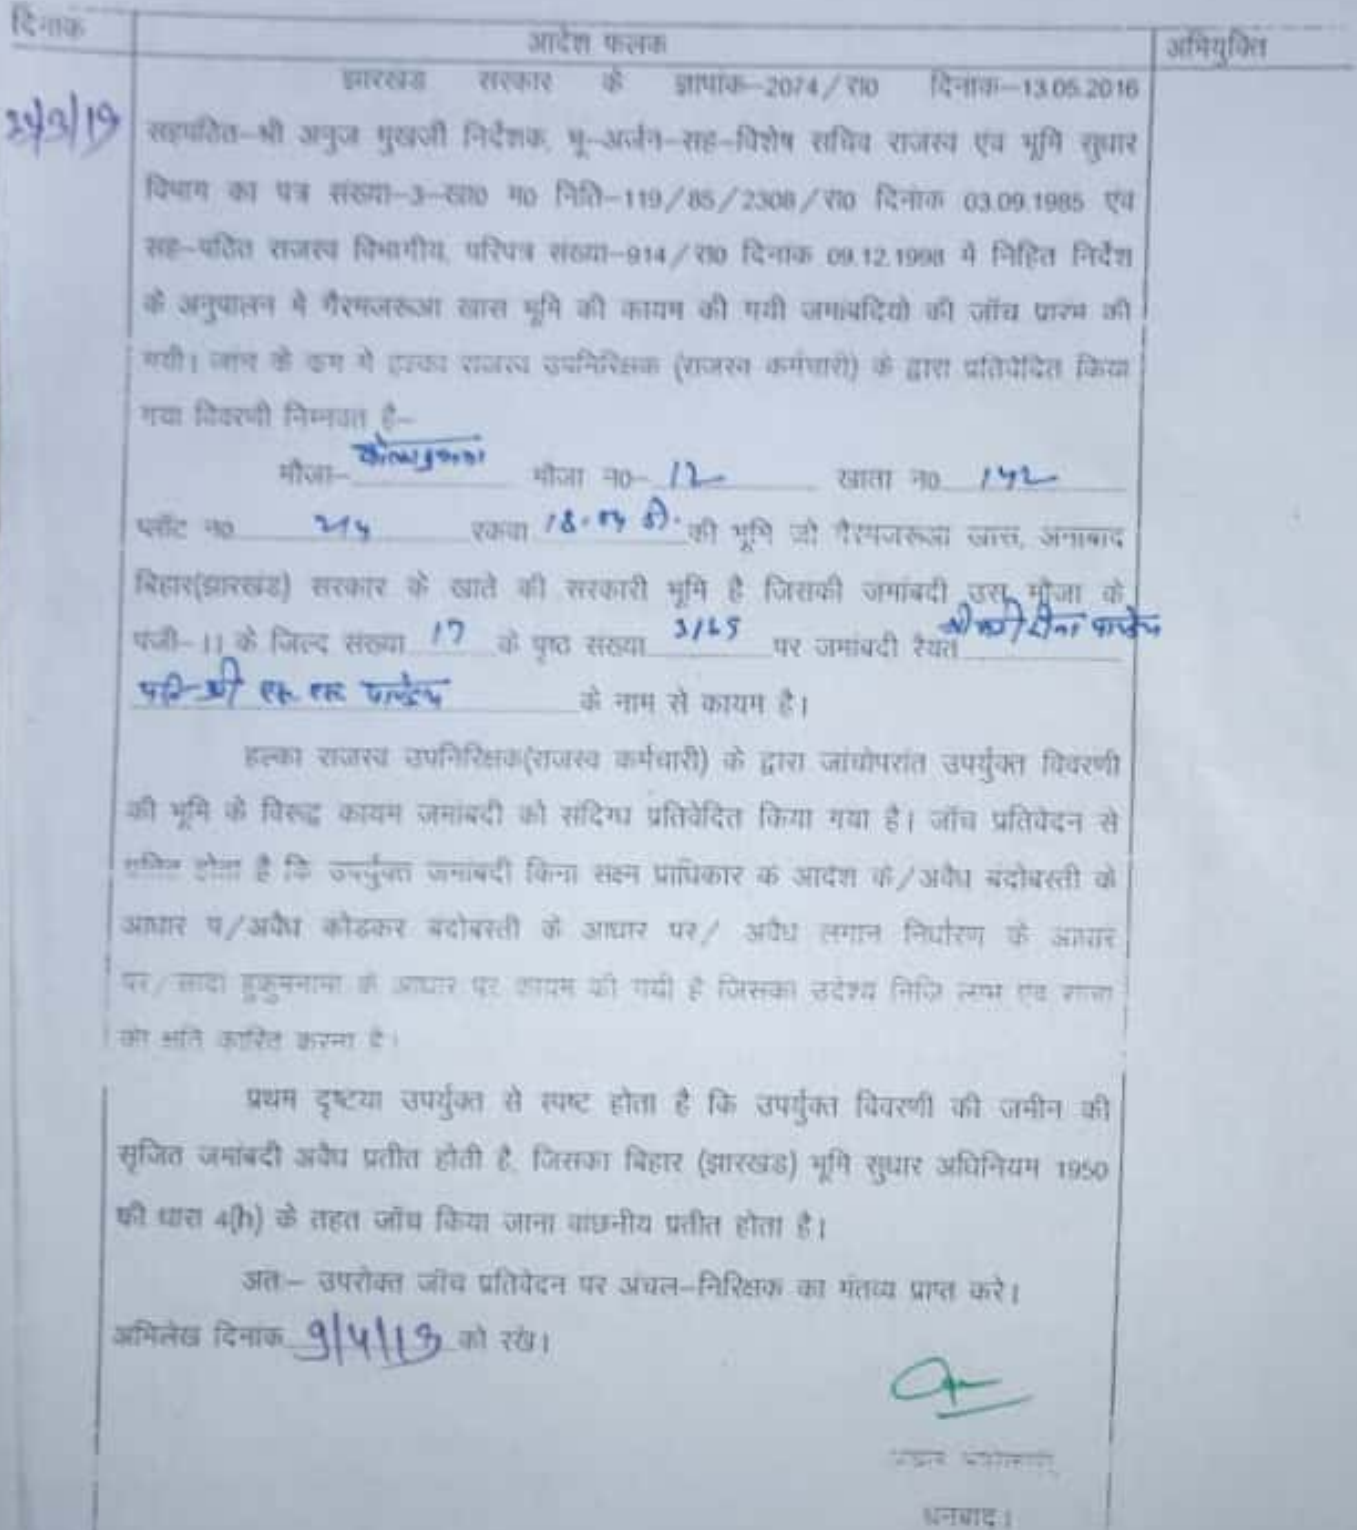 दिनांक
आदेश फलक
अभियुक्ति
झारखंड सरकार के ज्ञापांक-2074/रा0 दिनांक-13.05.2016
सहपठित-श्री अनुज मुखर्जी निर्देशक, भू-अर्जन-सह-विशेष सचिव राजस्व एंव भूमि सुधार
विभाग का पत्र संख्या-3-खा0 म0 निति-119/85/2308/रा0 दिनांक 03.09.1985 एंव
सह-पठित राजस्व विभागीय, परिपत्र संख्या-914/रा0 दिनांक 09.12.1998 में निहित निर्देश
के अनुपालन में गैरमजरूआ खास भूमि की कायम की गयी जमांबंदियो की जाँच प्रारंभ की
गयी। जांच के क्रम में हल्का राजस्व उपनिरिक्षक (राजस्व कर्मचारी) के द्वारा प्रतिवेदित किया
गया विवरणी निम्नवत है-
मौजा- मौजा न0- 12 खाता न0 142
प्लॉट न0 रकवा की भूमि जो गैरमजरूआ खास, अनाबाद
बिहार(झारखंड) सरकार के खाते की सरकारी भूमि है जिसकी जमांबंदी उस मौजा के
पंजी-11 के जिल्द संख्या 17 के पृष्ठ संख्या पर जमांबंदी रैयत
पति-श्री एस. एस. पाण्डेय के नाम से कायम है।
हल्का राजस्व उपनिरिक्षक(राजस्व कर्मचारी) के द्वारा जांचोपरांत उपर्युक्त विवरणी
की भूमि के विरूद्ध कायम जमांबंदी को संदिग्ध प्रतिवेदित किया गया है। जाँच प्रतिवेदन से
होता है कि उपर्युक्त जमांबंदी बिना सक्षम प्राधिकार के आदेश के/अवैध बंदोबस्ती के
आधार प/अवैध कोडकर बंदोबस्ती के आधार पर/ अवैध लगान निर्धारण के आधार
पर/ सादा हुकुमनामा के आधार पर कायम की गयी है जिसका उदेश्य निजि लाभ एंव
को क्षति कारित करना है।
प्रथम दृष्टया उपर्युक्त से स्पष्ट होता है कि उपर्युक्त विवरणी की जमीन की
सृजित जमांबंदी अवैध प्रतीत होती है, जिसका बिहार (झारखंड) भूमि सुधार अधिनियम 1950
की धारा 4(h) के तहत जाँच किया जाना वांछनीय प्रतीत होता है।
अतः- उपरोक्त जाँच प्रतिवेदन पर अंचल-निरिक्षक का मंतव्य प्राप्त करे।
अभिलेख दिनांक 9/4/19 को रखें।
धनबाद।